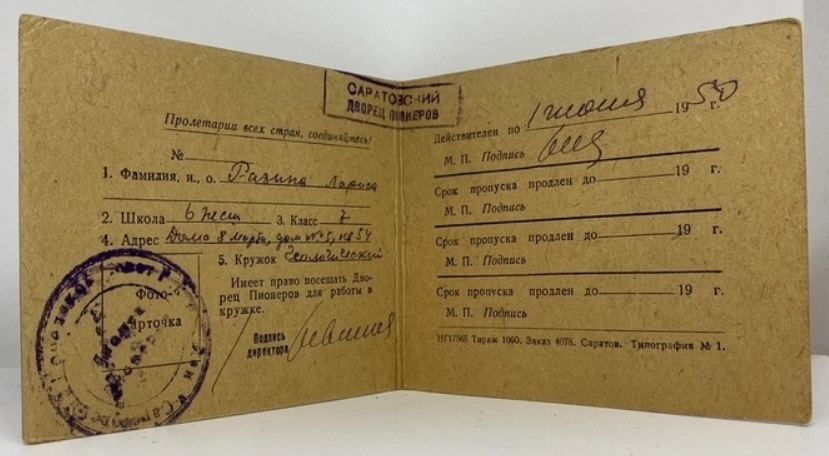 САРАТОВСКИЙ
ДВОРЕЦ ПИОНЕРОВ
Пролетарии всех стран, соединяйтесь!
№
1. Фамилия, и., о. Разина Лариса
2. Школа 6 жен 3. Класс 7
4. Адрес Дома 8 марта, дом №5, кв 54
5. Кружок Геологический
Фото-
карточка
Имеет право посещать Дво-
рец Пионеров для работы в
кружке.
Подпись
директора
Действителен по 1 июня 1950 г.
М. П. Подпись
Срок пропуска продлен до 19 г.
М. П. Подпись
Срок пропуска продлен до 19 г.
М. П. Подпись
Срок пропуска продлен до 19 г.
М. П. Подпись
НГ17565 Тираж 1000. Заказ 4078. Саратов. Типография № 1.